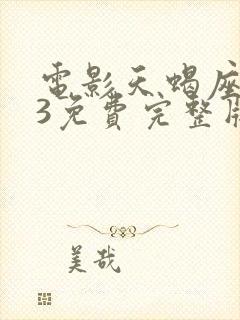 電影天蝎座
3免費完整
美哉